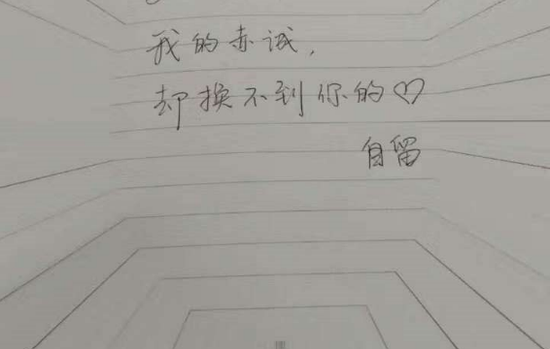 我的赤诚，
却换不到你的♡
自留